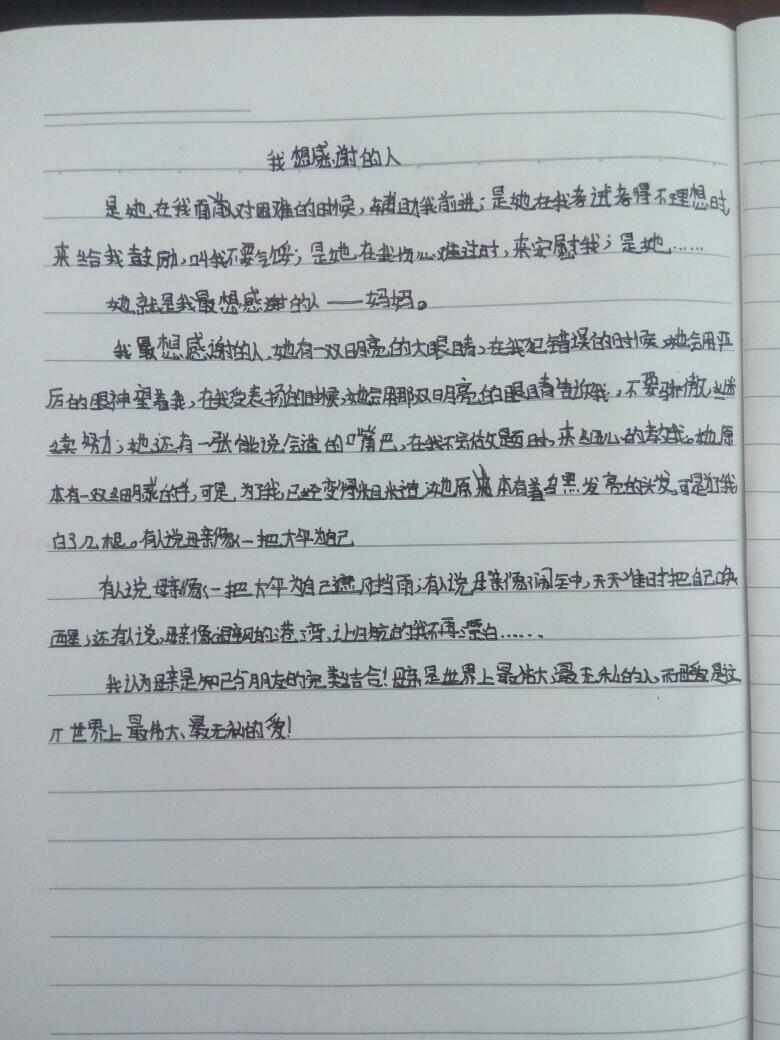 我想感谢的人
是她,在我面对困难的时候,辅助我前进;是她在我考试考得不理想时,
来给我鼓励,叫我不要气馁;是她,在我伤心难过时,来安慰我;是她……
她就是我最想感谢的人——妈妈。
我最想感谢的人,她有一双明亮的大眼睛,在我犯错误的时候,她会用严
厉的眼神望着我,在我受表扬的时候,她会用那双明亮的眼睛告诉我,不要骄傲,
续努力;她还有一张能说会道的嘴巴,在我不会做题时,来细心的教我。她原
本有一双细腻的手,可是,为了我,已经变得粗糙,她原本有着乌黑发亮的头发,可是为了我
白了几根。有人说母亲像一把大伞为自己
有人说母亲像一把大伞为自己遮风挡雨;有人说母亲像闹钟,天天准时把自己唤
醒;还有人说,母亲像避风的港湾,让归航的我不再漂白……
我认为母亲是知己与朋友的完美结合!母亲是世界上最伟大,最无私的人,而母爱是这
个世界上最伟大、最无私的爱!